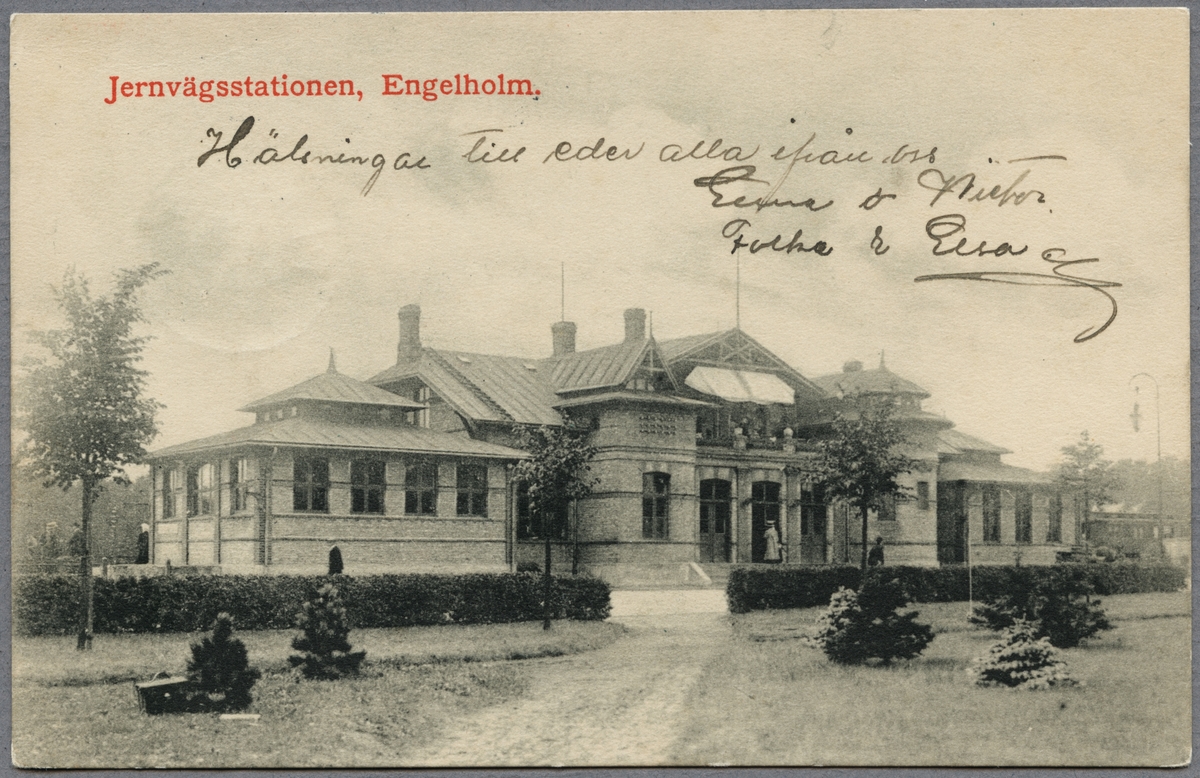 Jernvägsstationen, Engelholm.
Hälsningar till eder alla ifrån oss
Emma & Victor.
Folke & Elsa